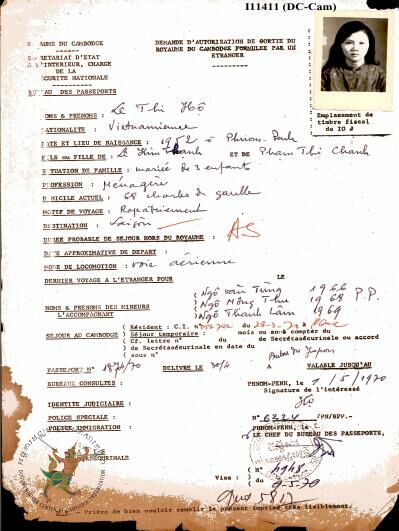 I11411 (DC-Cam)
ROYAUME DU CAMBODGE
SECRETARIAT D'ETAT
A L'INTERIEUR, CHARGE
DE LA
SECURITE NATIONALE
BUREAU DES PASSEPORTS
DEMANDE D'AUTORISATION DE SORTIE DU
ROYAUME DU CAMBODGE FORMULEE PAR UN
ETRANGER
Emplacement de
timbre fiscal
de 10 #
NOMS & PRENOMS : Lê Thi Hô
NATIONALITE : Vietnamienne
DATE ET LIEU DE NAISSANCE : 1952 à Phnom-Penh
FILS ou FILLE DE : Lê Kim Thanh ET DE Pham Thi Chanh
SITUATION DE FAMILLE : mariée de 3 enfants
PROFESSION : Ménagère
DOMICILE ACTUEL : 68 charles de gaulle
MOTIF DE VOYAGE : Rapatriement
DESTINATION : Saigon
DUREE PROBABLE DE SEJOUR HORS DU ROYAUME : AS
DATE APPROXIMATIVE DE DEPART :
MODE DE LOCOMOTION : voie aérienne
DERNIER VOYAGE A L'ETRANGER POUR LE
NOMS & PRENOMS DES MINEURS
L'ACCOMPAGNANT
( Ngô Van Tùng 1966
( Ngô Mông Thu 1968 P.P.
( Ngô Thanh Lâm 1969
SEJOUR AU CAMBODGE
( Résident : C.I. n°
( Séjour temporaire : mois ou an à compter du
( Cf. lettre n° du de Secrétaséurinale ou accord
( de Secrétaséurinale en date du
( sous n°
PASSEPORT N° 1874/70 DELIVRE LE 30/4 A VALABLE JUSQU'AU
BUREAUX CONSULTES : PHNOM-PENH, le 1/5/1970
Signature de l'intéressé
Hô
IDENTITE JUDICIAIRE :
POLICE SPECIALE :
POLICE IMMIGRATION :
N° 6324 /PN/BPP.-
PHNOM-PENH, le
LE CHEF DU BUREAU DES PASSEPORTS,
Visa :
( N° 4948
( du 9-5-70
N.B. Prière de bien vouloir remplir le présent imprimé très lisiblement.